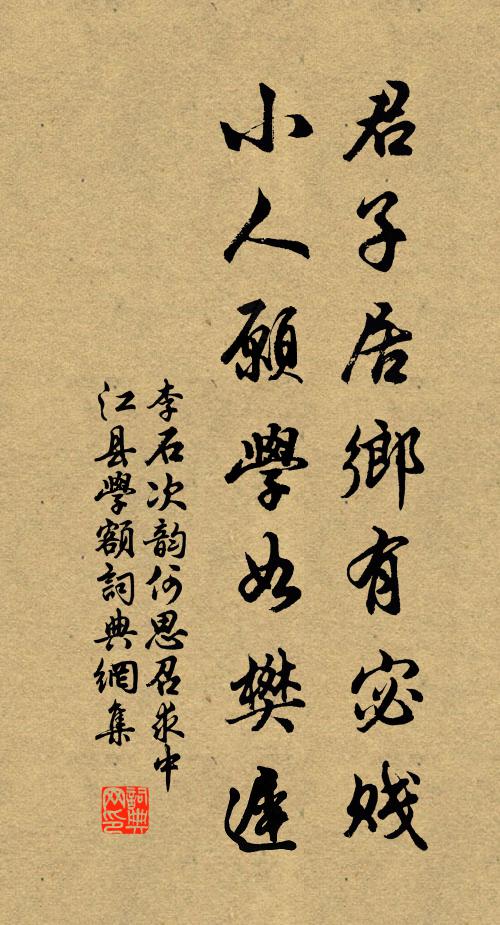 君子居鄉有宓賤
小人願學如樊遲
李石次韵何思召求中
江县學額詞典網集
詞典網印